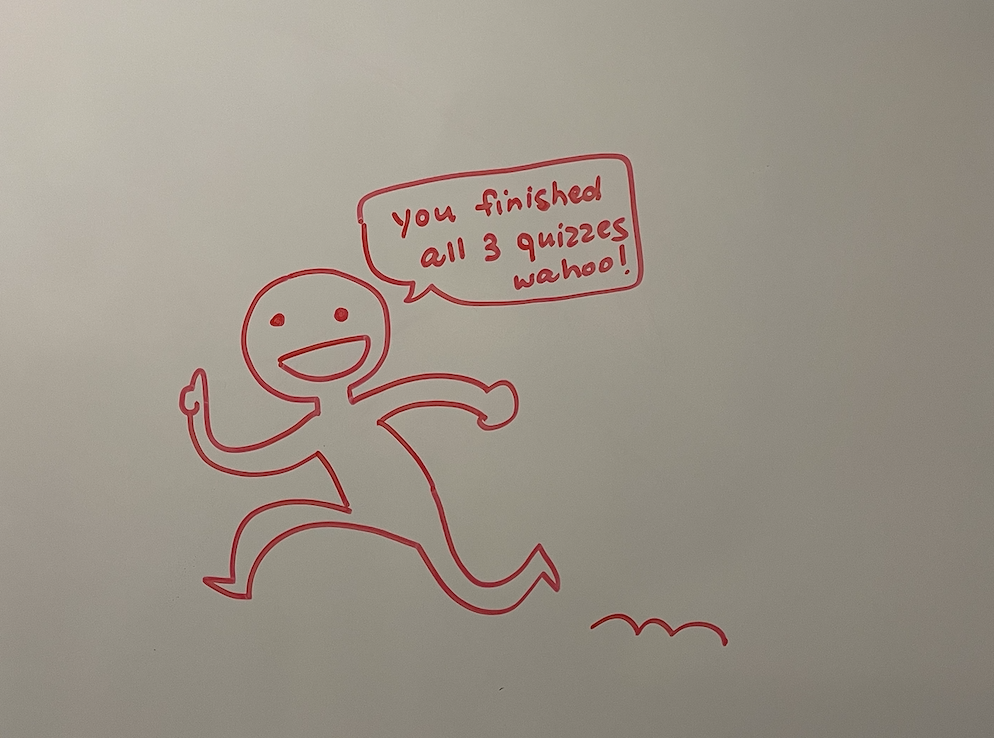 you finished
all 3 quizzes
wahoo!